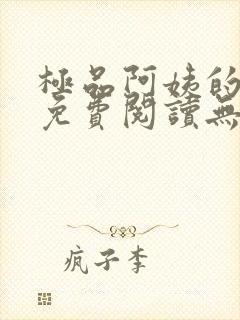 極品阿姨的
免費閱讀無
瘋子李